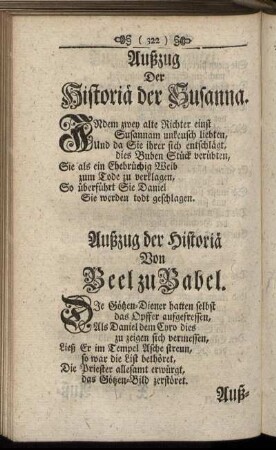 ( 322 )
Außzug
Der
Historiä der Susanna.
INdem zwey alte Richter einst
Susannam unkeusch liebten,
Und da Sie ihrer sich entschlägt,
dies Buben Stück verübten,
Sie als ein Ehebrüchig Weib
zum Tode zu verklagen,
So überführt Sie Daniel
Sie worden todt geschlagen.
Außzug der Historiä
Von
Beel zu Babel.
DJe Götzen-Diener hatten selbst
das Opffer aufgefressen,
Als Daniel dem Cyro dies
zu zeigen sich vermessen,
Ließ Er im Tempel Asche streun,
so war die List bethöret,
Die Priester allesamt erwürgt,
das Götzen-Bild zerstöret.
Auß-